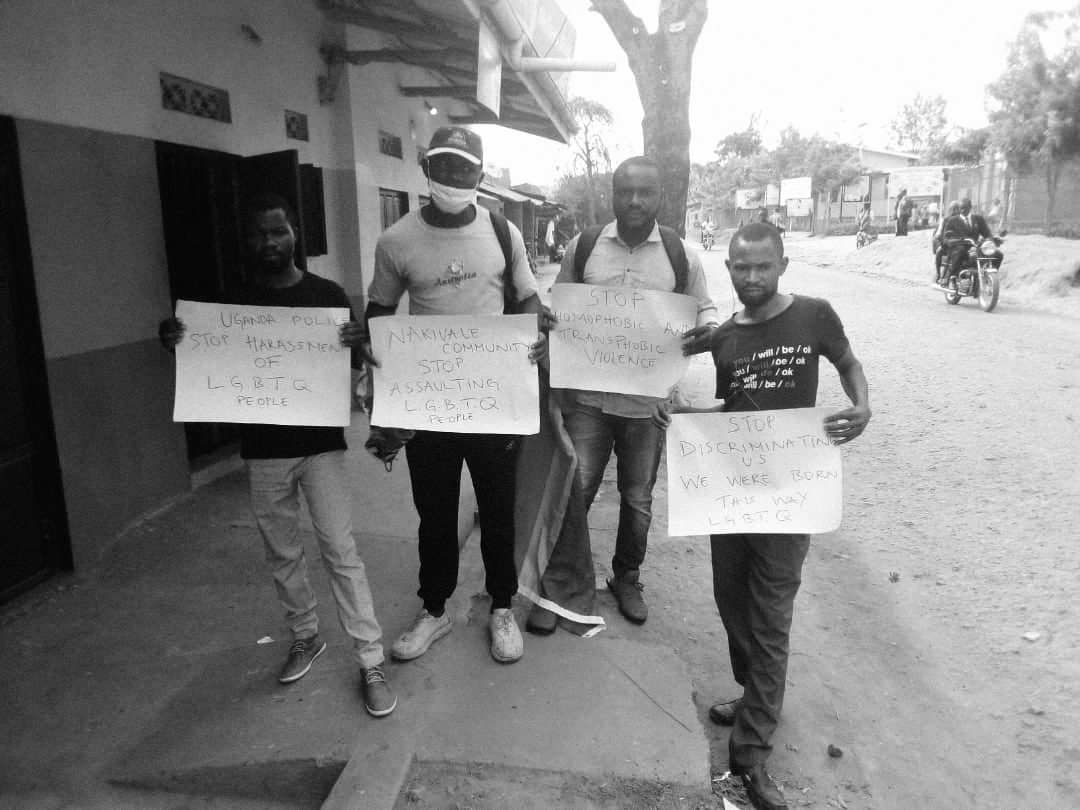 UGANDA POLICE
STOP HARASSMEN
OF
L G B T Q
PEOPLE
NAKIVALE
COMMUNITY
STOP
ASSAULTING
L.G.B.T.Q
PEOPLE
Australia
STOP
HOMOPHOBIC AND
TRANSPHOBIC
VIOLENCE
STOP
DISCRIMINATING
US
WE WERE BORN
THIS WAY
L.G.B.T.Q
you / will / be / ok
you / will / be / ok
you will / be / ok
will / be / ok